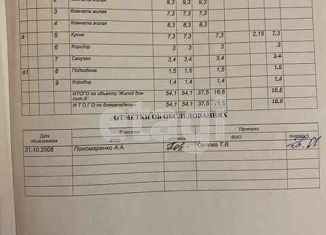 2 Комната жилая 9,3 9,3 9,3
3 Комната жилая 7,3 7,3 7,3
4 Комната жилая 8,3 8,3 8,3
а 5 Кухня 7,3 7,3 2,15 7,3
6 Коридор 3 3 3
7 Санузел 3,4 3,4 3,4
а1 8 Подсобная 1,5 1,5 1,5
9 Коридор 1,4 1,4 1,4
ИТОГО по объекту "Жилой дом лит.А" 54,1 54,1 37,5 16,6 16,6
И Т О Г О по домовладению 54,1 54,1 37,5 16,6 16,6
ОТМЕТКИ ОБ ОБСЛЕДОВАНИЯХ
Дата обследования Проверил
ФИО
31.10.2008 Пономаренко А.А. Орлова Т.В.